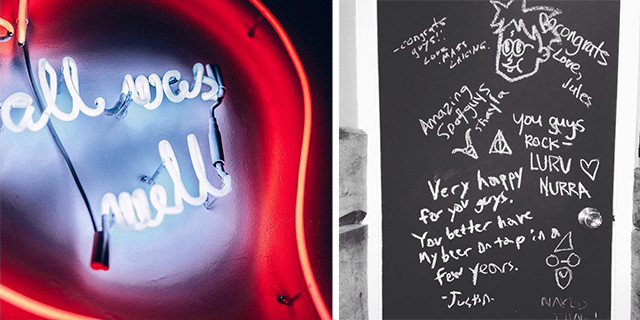 all was
well
-congrats
guys!!
Love Miss
congrats
Love,
Jules
Amazing
Spot guys
Shayla
you guys
ROCK-
LURV
NURRA
Very happy
for you guys.
You better have
My beer on tap in a
few years.
-Justin.
NAKED